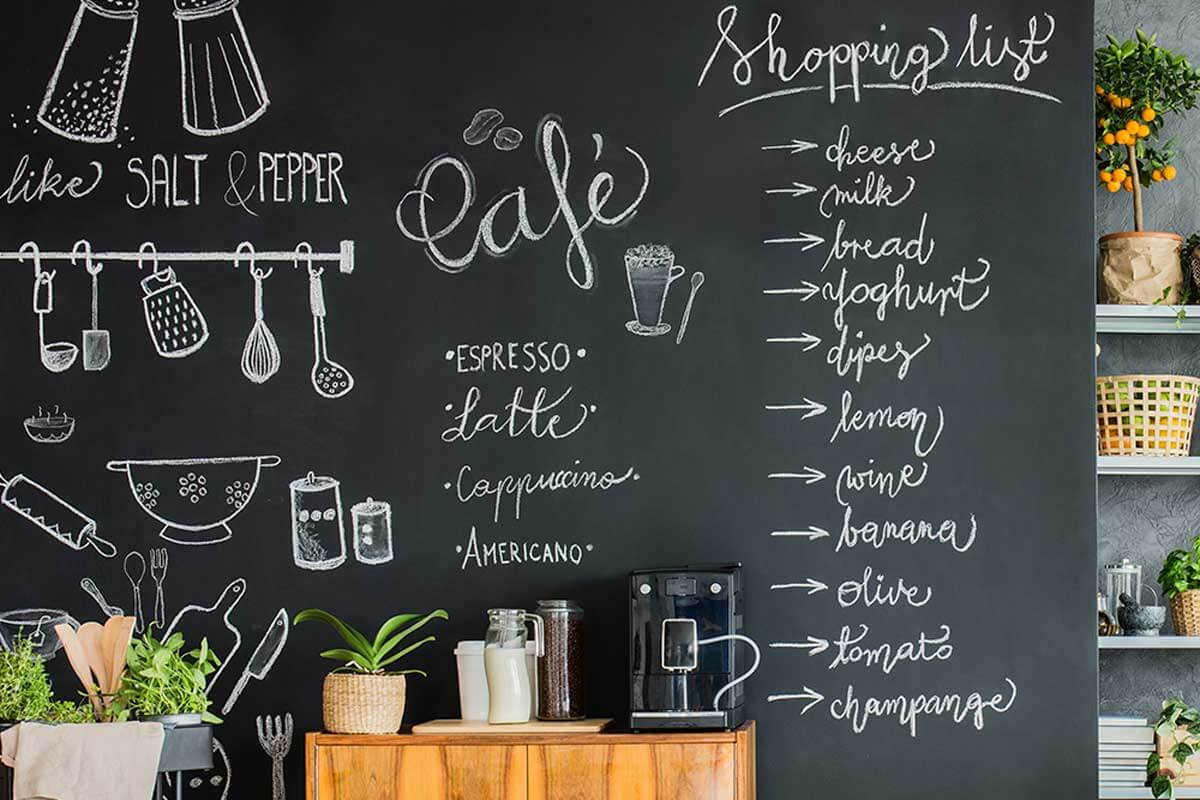 like SALT & PEPPER
Café
•ESPRESSO•
•Latte•
•Cappuccino•
•AMERICANO•
Shopping list
→ cheese
→ milk
→ bread
→ yoghurt
→ dipes
→ lemon
→ wine
→ banana
→ olive
→ tomato
→ champange